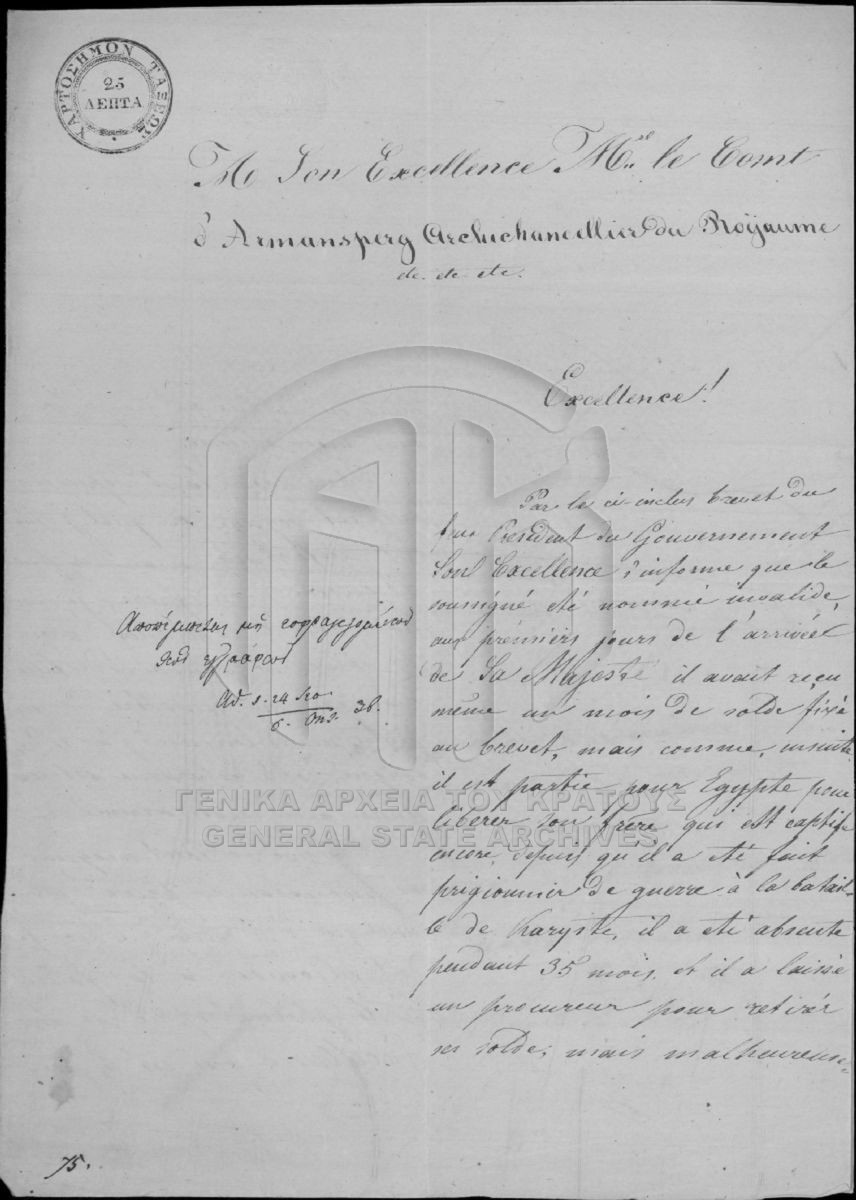 ΧΑΡΤΟΣΗΜΟΝ ΤΑΞΕΩΣ
25
ΛΕΠΤΑ
A Son Excellence M. le Comt
d'Armansperg Archichancellier du Royaume
etc. etc. etc.
Excellence!
Par le ci-inclus brevet du
feu President du Gouvernement
Son Excellence s'informe que le
soussigné eté nommé invalide,
aux prémiérs jours de l'arrivée
de Sa Majesté il avait reçu
même un mois de solde fixé
au brevet, mais comme, ensuite
il est partie pour Egypte pour
liberer son frère qui est captif
encore, depuis qu'il a eté fait
prigionnier de guerre à la batail-
le de Karysto, il a eté absente
pendant 35 mois, et il a laissé
un procureur pour retirér
ses solde; mais malheureuse-
36.
75.
ΓΕΝΙΚΑ ΑΡΧΕΙΑ ΤΟΥ ΚΡΑΤΟΥΣ
GENERAL STATE ARCHIVES